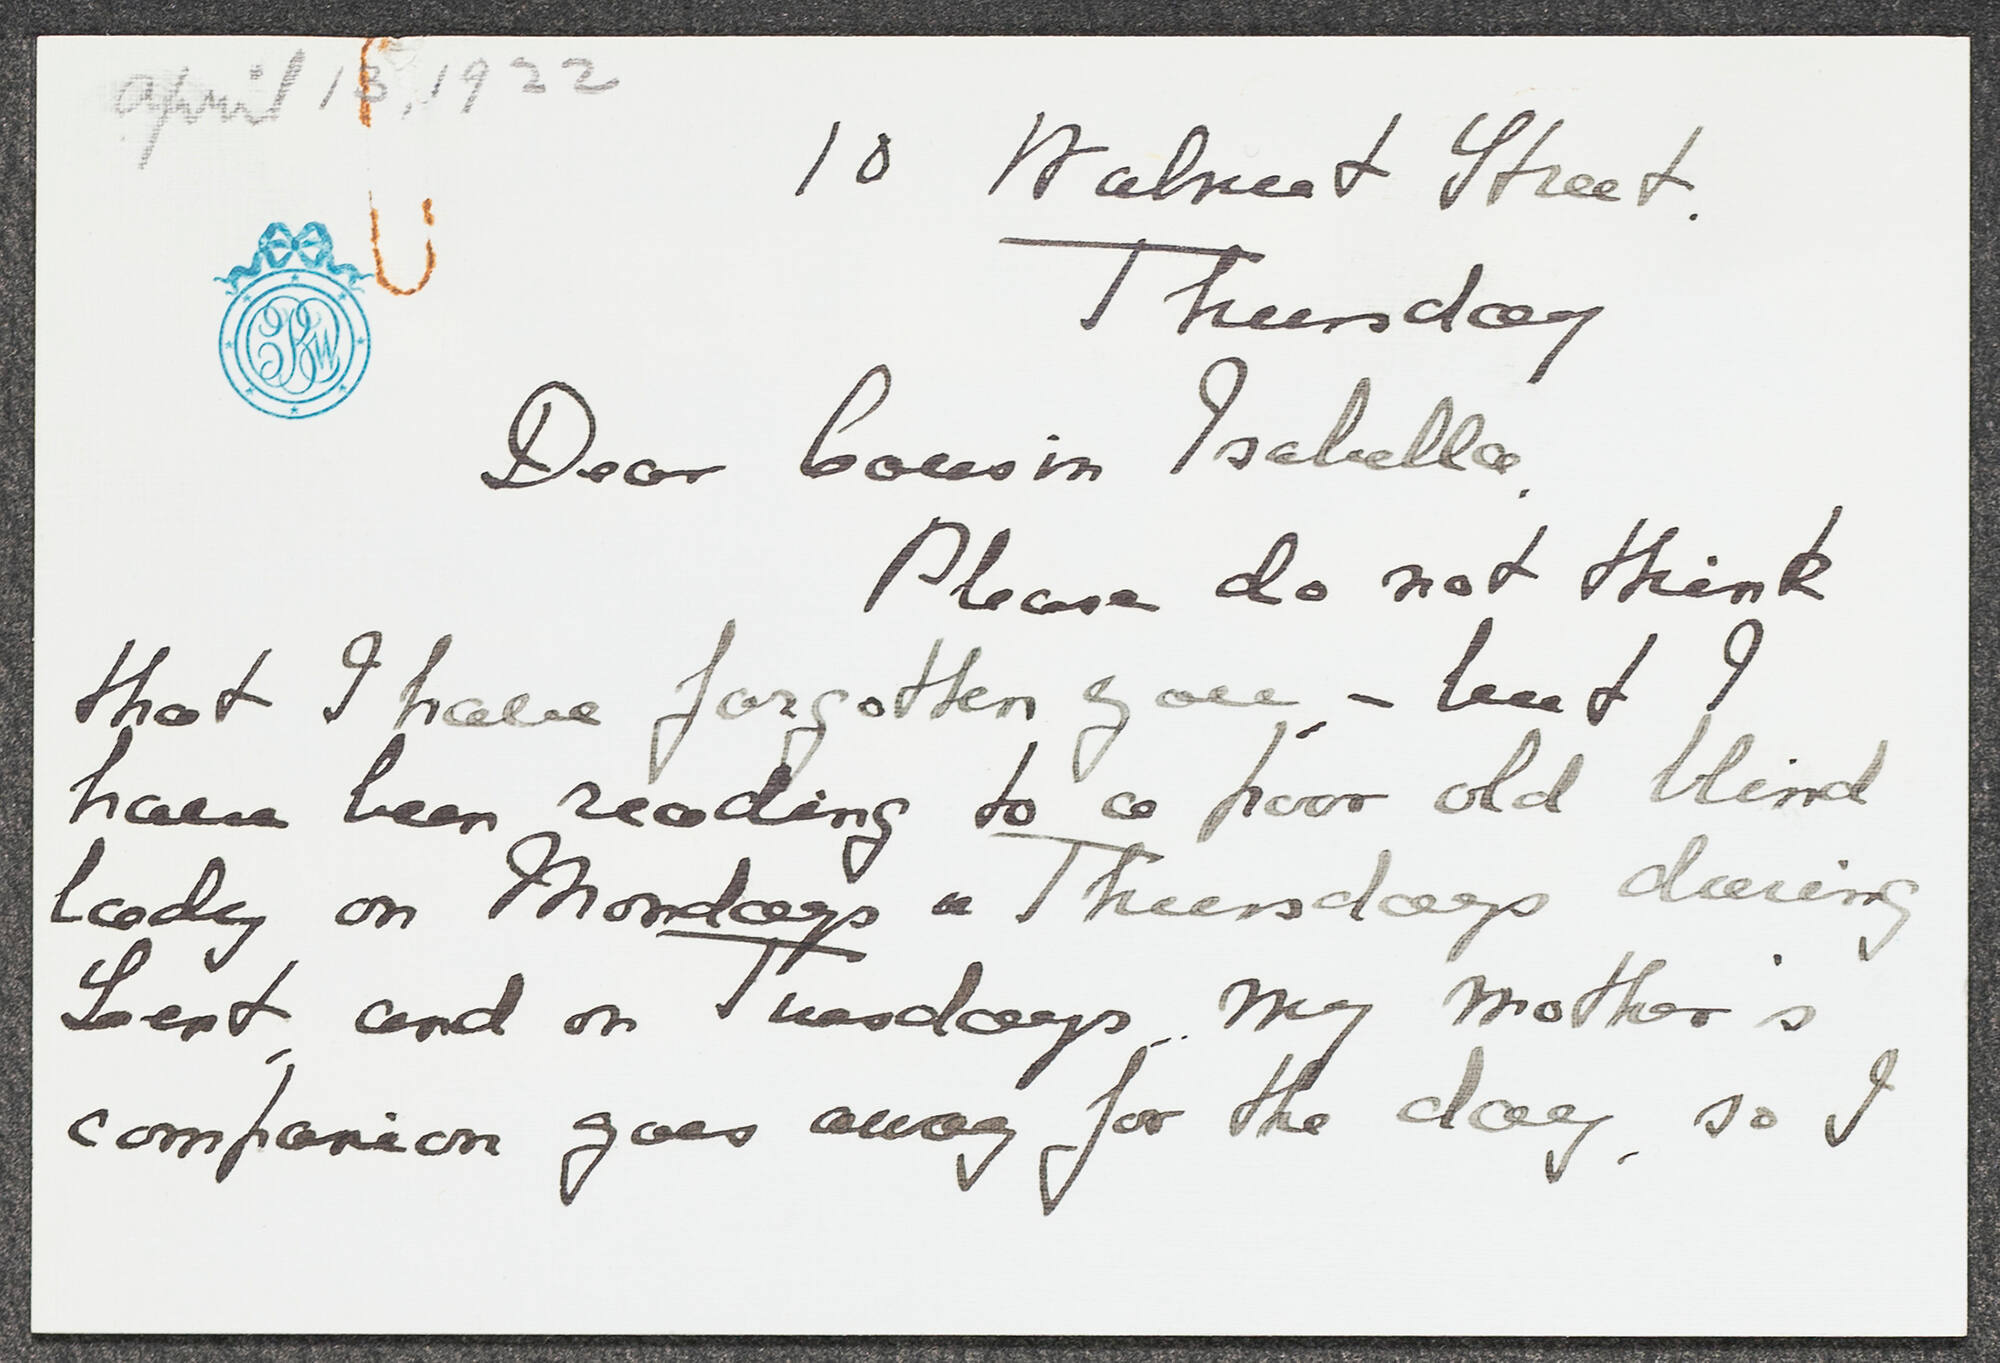 april 13, 1922
10 Walnut Street.
Thursday
Dear Cousin Isabella,
Please do not think
that I have forgotten you, - but I
have been reading to a poor old blind
lady on Mondays & Thursdays during
Lent, and on Tuesdays, my mother's
companion goes away for the day, so I